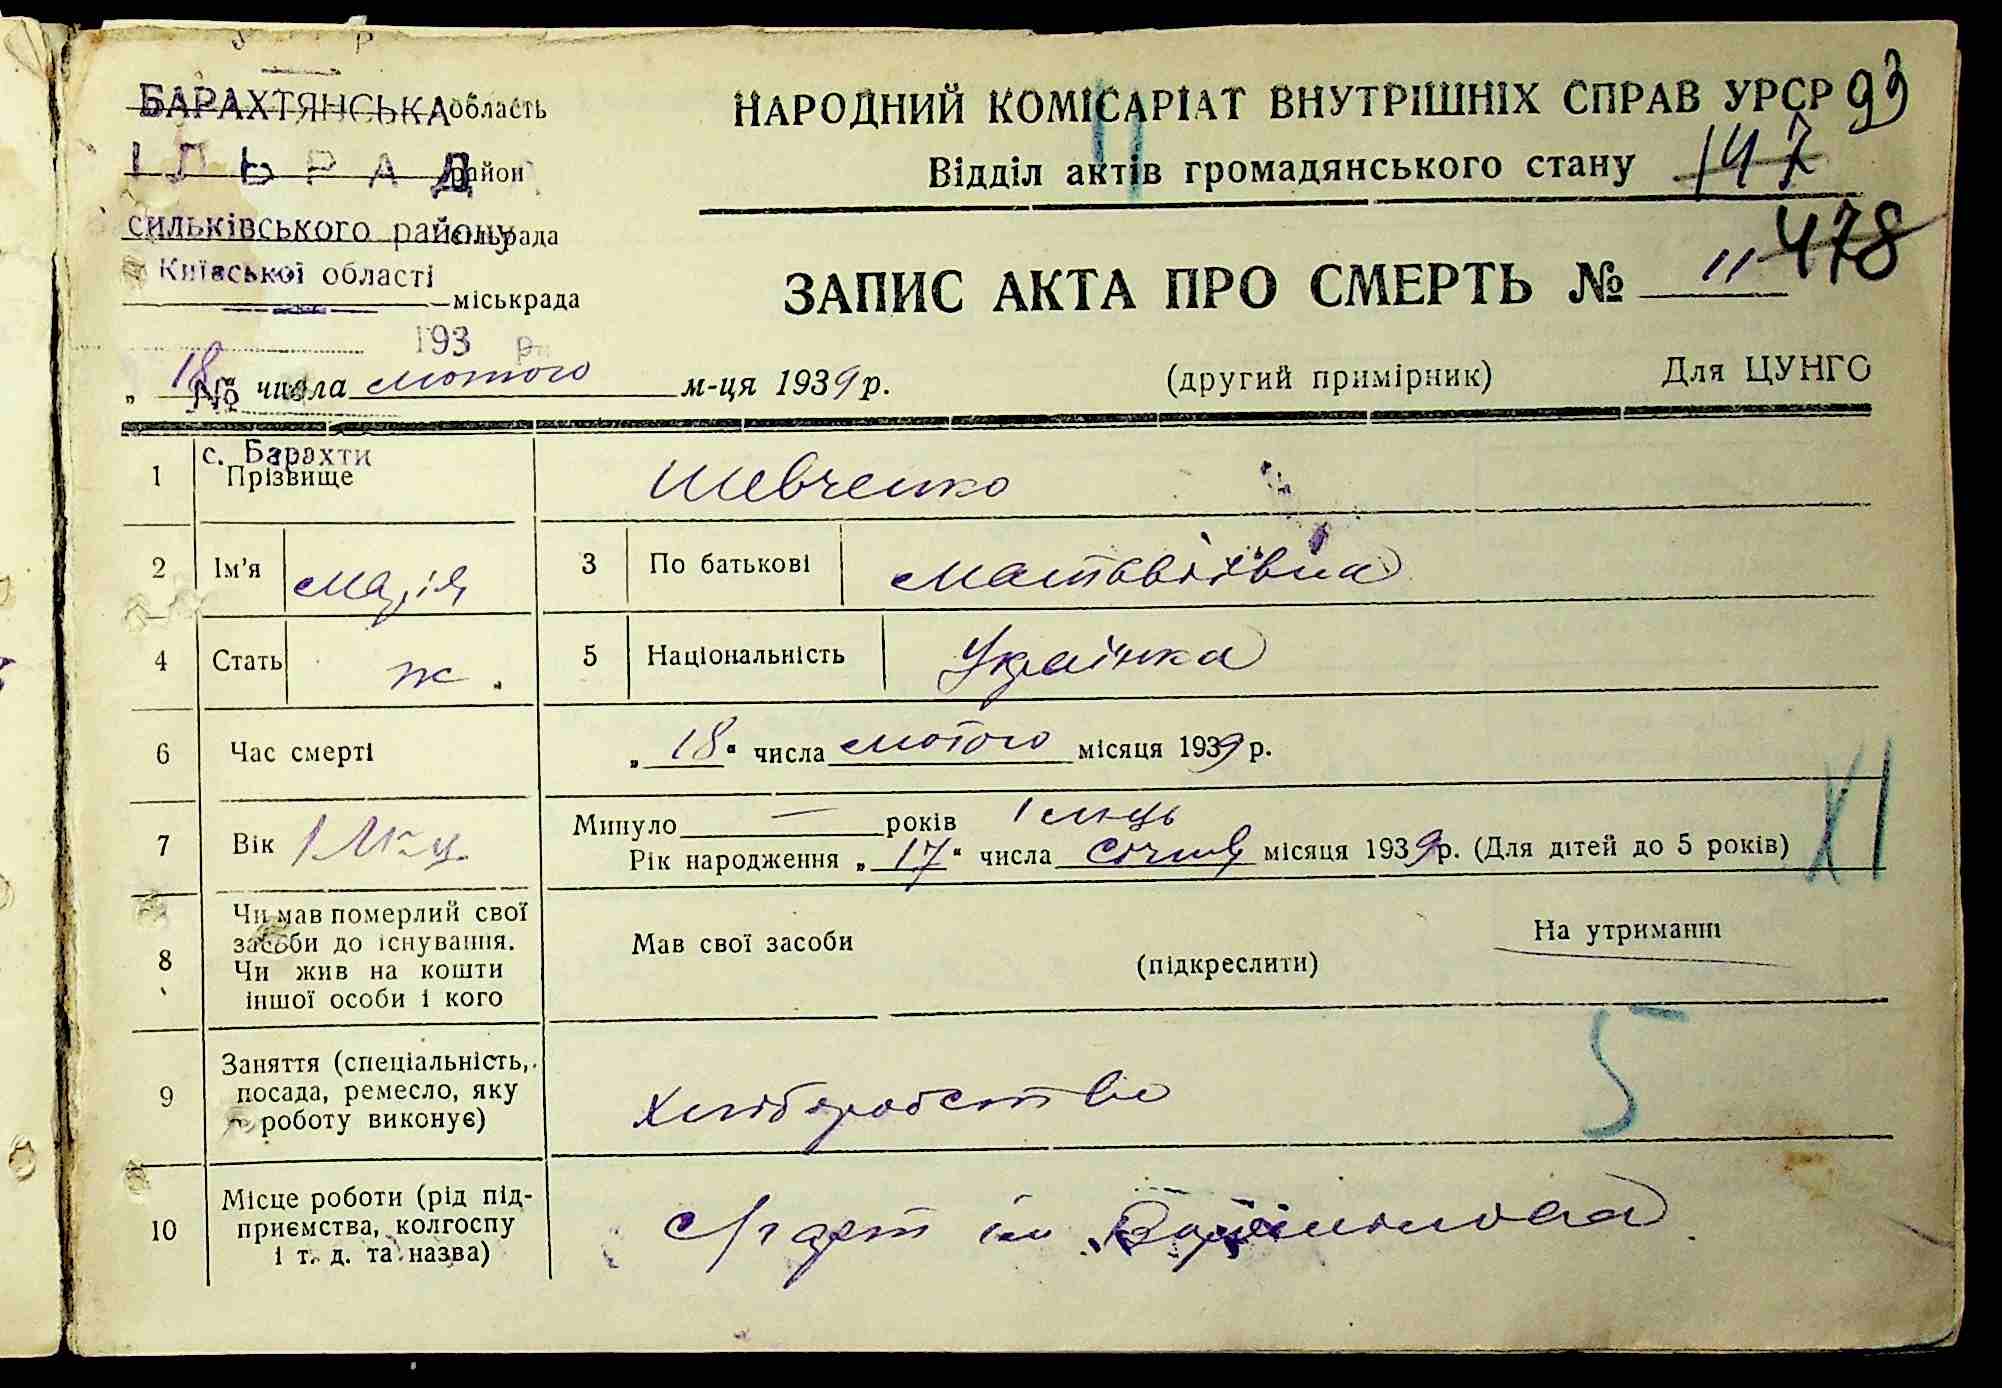 БАРАХТЯНСЬКА область
ІЛЬРАД район
сильківського району сільрада
Київської області
міськрада
193 р.
НАРОДНИЙ КОМІСАРІАТ ВНУТРІШНІХ СПРАВ УРСР 93
Відділ актів громадянського стану 147
ЗАПИС АКТА ПРО СМЕРТЬ № 11 478
„ 18 № числа лютого м-ця 1939 р. (другий примірник) Для ЦУНГО
с. Барахти
1 Прізвище Шевченко
2 Ім'я Марія 3 По батькові Матвіївна
4 Стать ж. 5 Національність Українка
6 Час смерті „18“ числа лютого місяця 1939 р.
7 Вік 1 м-ц Минуло — років 1 м-ць
Рік народження „17“ числа січня місяця 1939 р. (Для дітей до 5 років) XI
8 Чи мав померлий свої
засоби до існування.
Чи жив на кошти
іншої особи і кого
Мав свої засоби (підкреслити) На утриманні
9 Заняття (спеціальність,
посада, ремесло, яку
роботу виконує)
Хліборобство 5
10 Місце роботи (рід під-
приємства, колгоспу
і т. д. та назва)
с/г арт ім Ворошилова